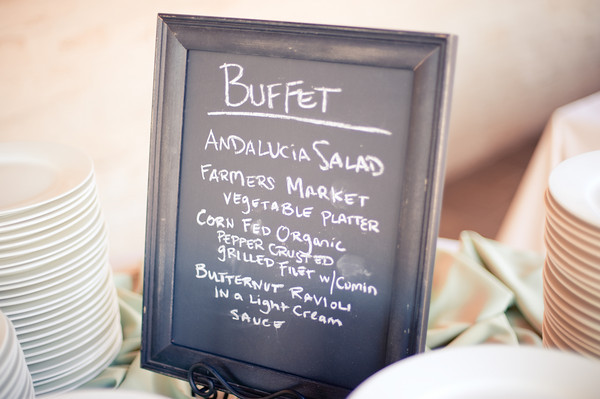 BUFFET
ANDALUCIA SALAD
FARMERS MARKET
VEGETABLE PLATTER
CORN FED ORGANIC
PEPPER CRUSTED
GRILLED FILET W/CUMIN
BUTTERNUT RAVIOLI
IN A LIGHT CREAM
SAUCE